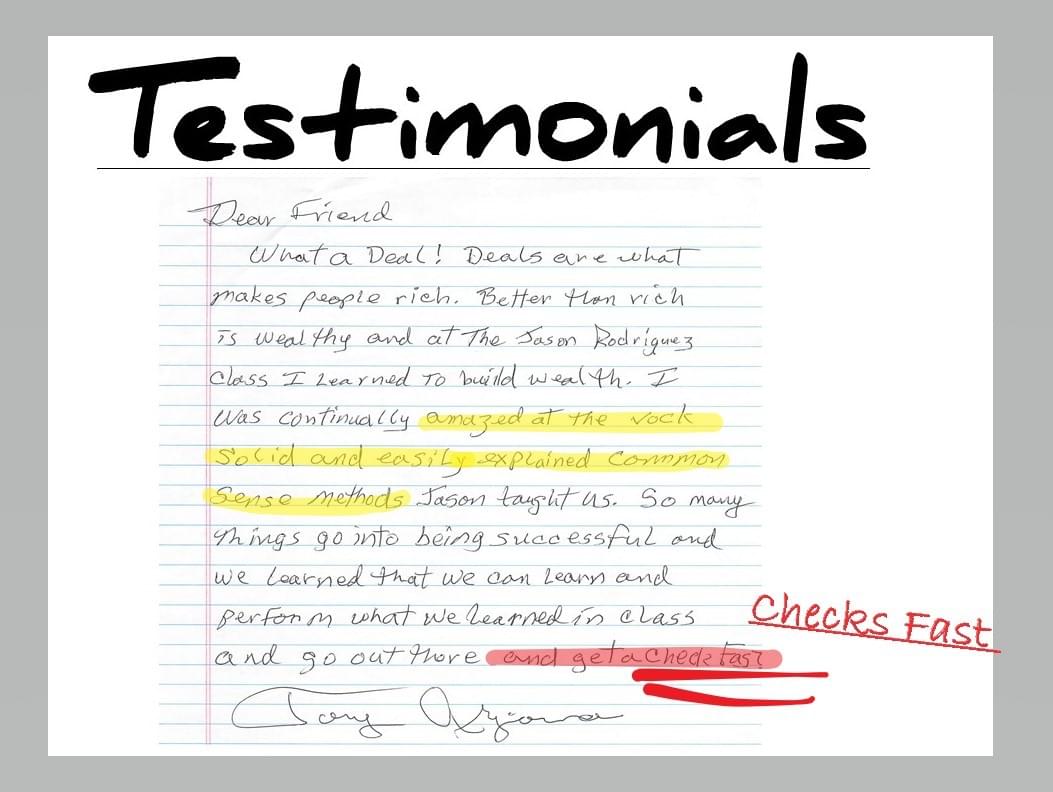 Testimonials
Dear Friend
What a Deal! Deals are what
makes people rich. Better than rich
is wealthy and at The Jason Rodriguez
Class I Learned To build wealth. I
was continually amazed at the rock
Solid and easily explained Common
Sense methods Jason taught us. So many
things go into being successful and
we learned that we can Learn and
perform what we Learned in Class
and go out there and get a Check Fast
Checks Fast
Tony